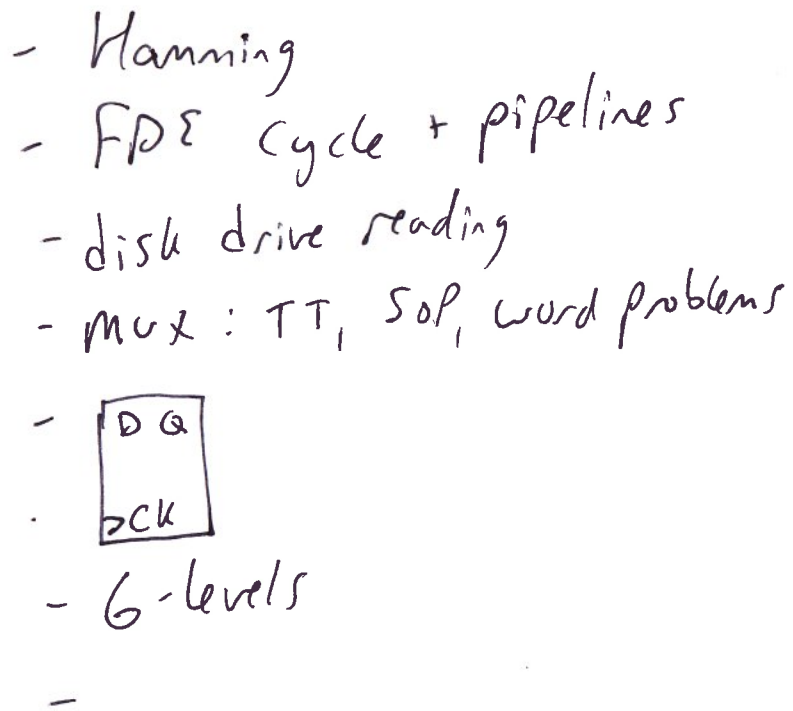 - Hamming
- FDE Cycle + pipelines
- disk drive reading
- mux : TT, SOP, word problems
- D Q
>CK
- 6-levels
-